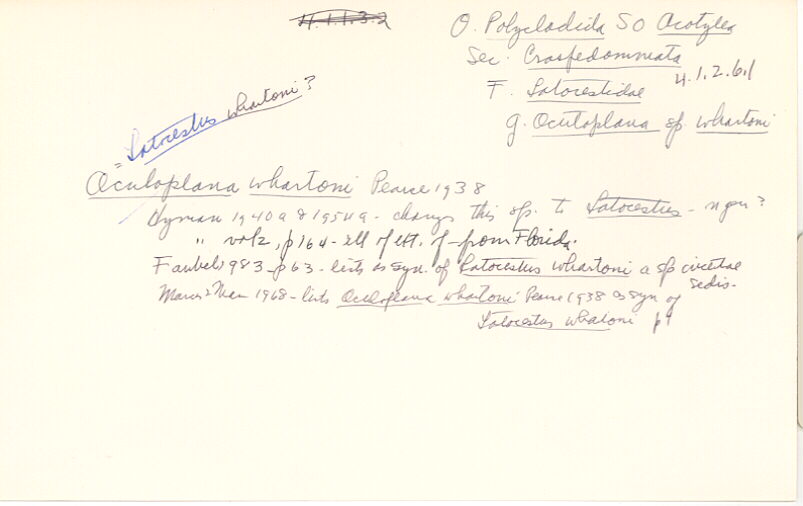 4.1.1.3.2
O. Polycladida SO Acotylea
Sec. Craspedommata
4.1.2.6.1
F. Latocestidae
g. Oculoplana sp. whartoni
= Latocestus whartoni?
Oculoplana whartoni Pearse 1938
Hyman 1940a & 1954a - changs this sp. to Latocestus - n gen?
" vol 2, p 164 - ill of ext. of - from Florida.
Faubel 1983 - p63 - lists as syn. of Latocestus whartoni a sp incetae
sedis -
Marcus & Mar 1968 - lists Oculoplana whartoni Pearse 1938 as syn of
Latocestus whatoni p 9